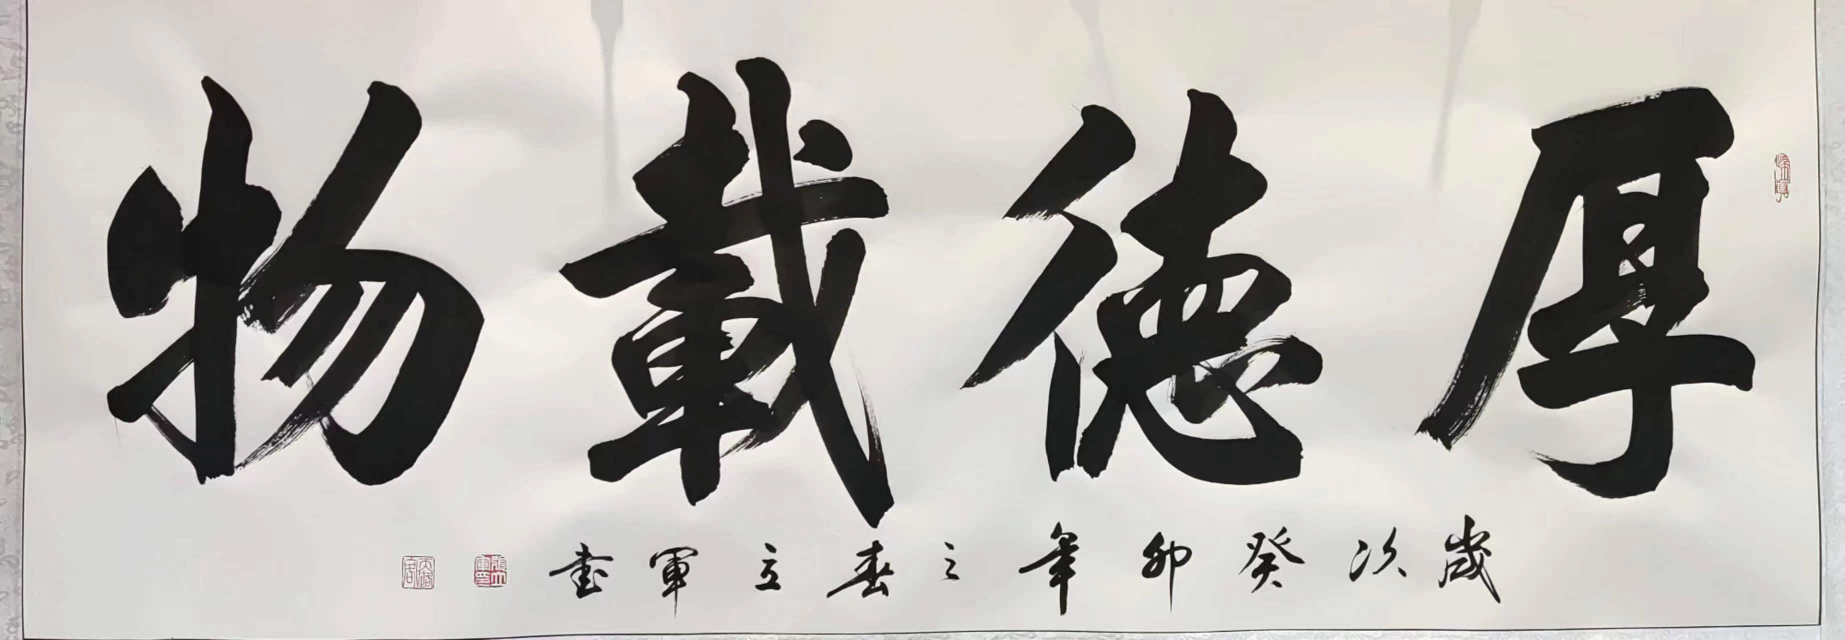 厚德載物
歲次癸卯年之春立軍書